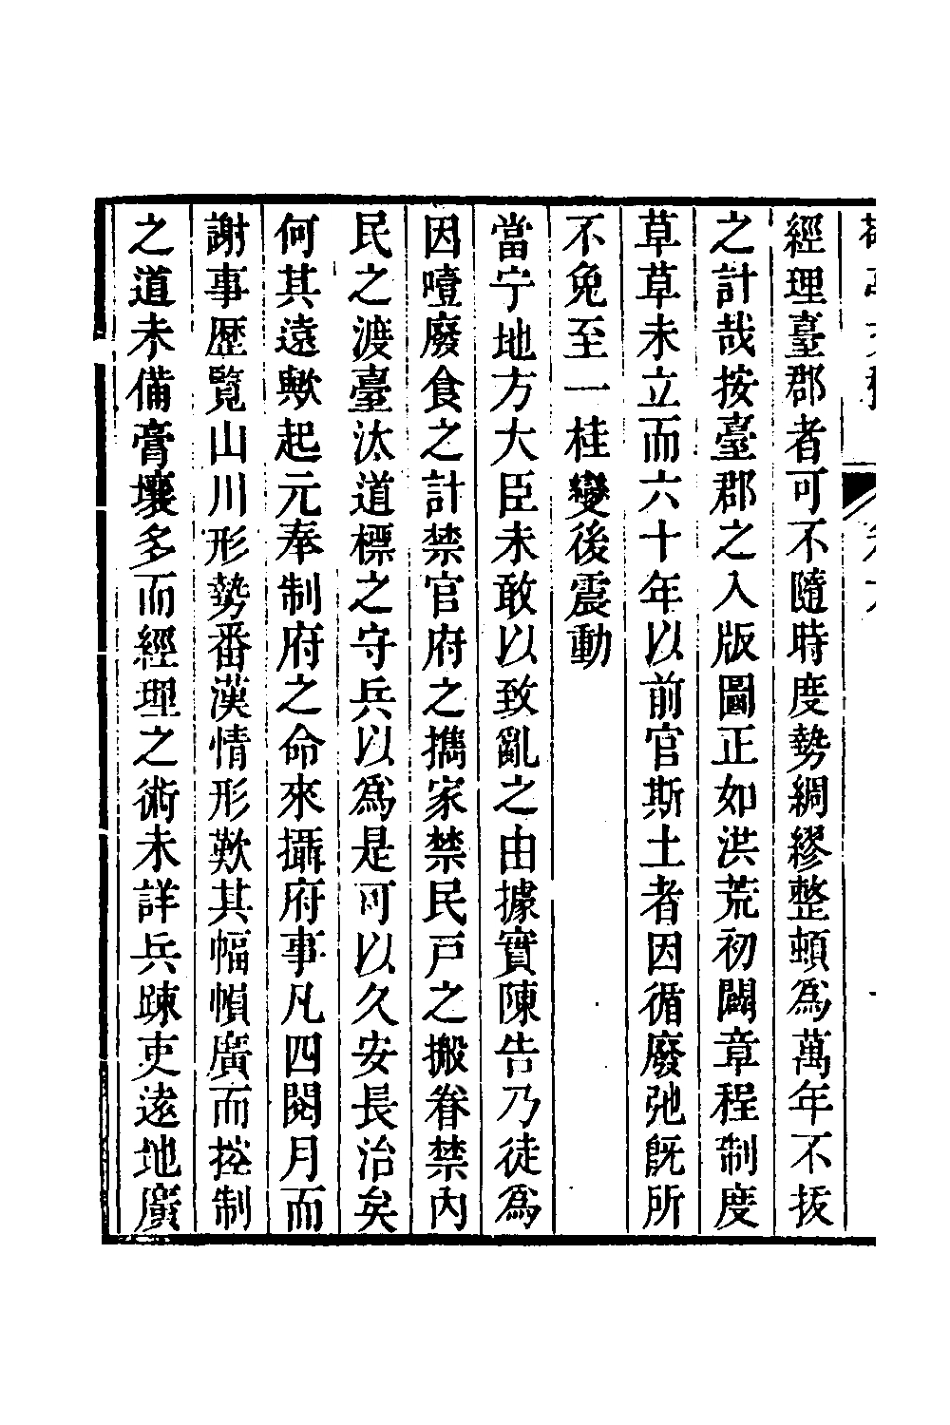 經理臺郡者可不隨時度勢綢繆整頓爲萬年不拔
之計哉按臺郡之入版圖正如洪荒初闢章程制度
草草未立而六十年以前官斯土者因循廢弛旣所
不免至一桂變後震動
當宁地方大臣未敢以致亂之由據實陳告乃徒爲
因噎廢食之計禁官府之攜家禁民戸之搬眷禁內
民之渡臺汰道標之守兵以爲是可以久安長治矣
何其遠歟起元奉制府之命來攝府事凡四閱月而
謝事歷覽山川形勢番漢情形歎其幅幀廣而控制
之道未備膏壤多而經理之術未詳兵踈吏逺地廣